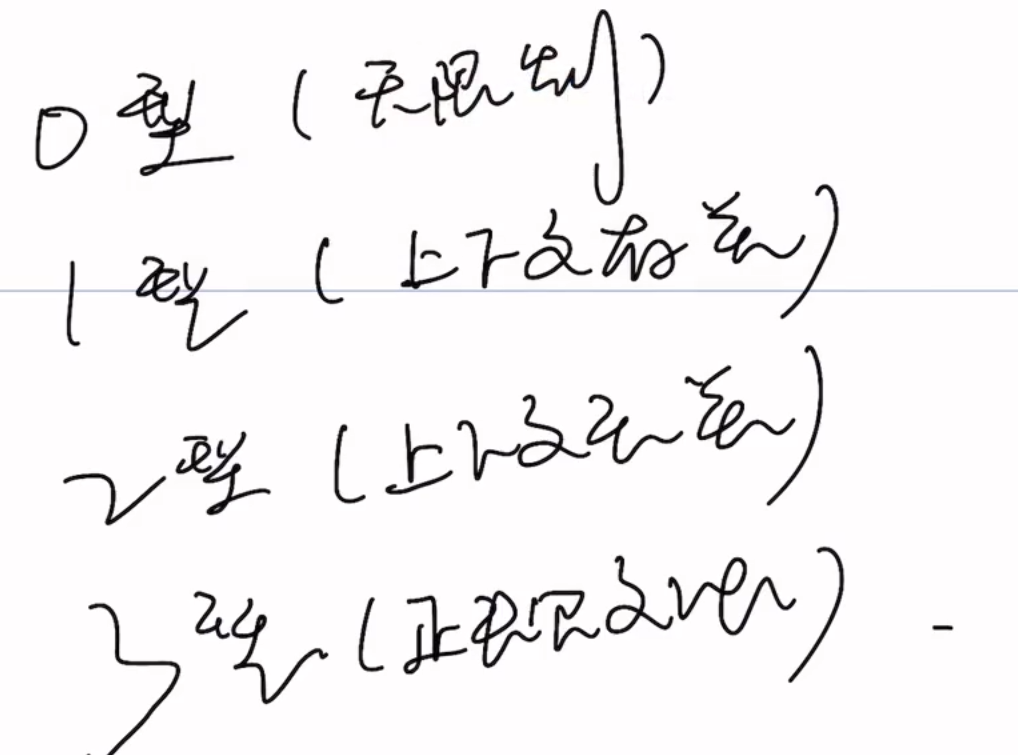 0型（无限制）
1型（上下文有关）
2型（上下文无关）
3型（正规文法） -